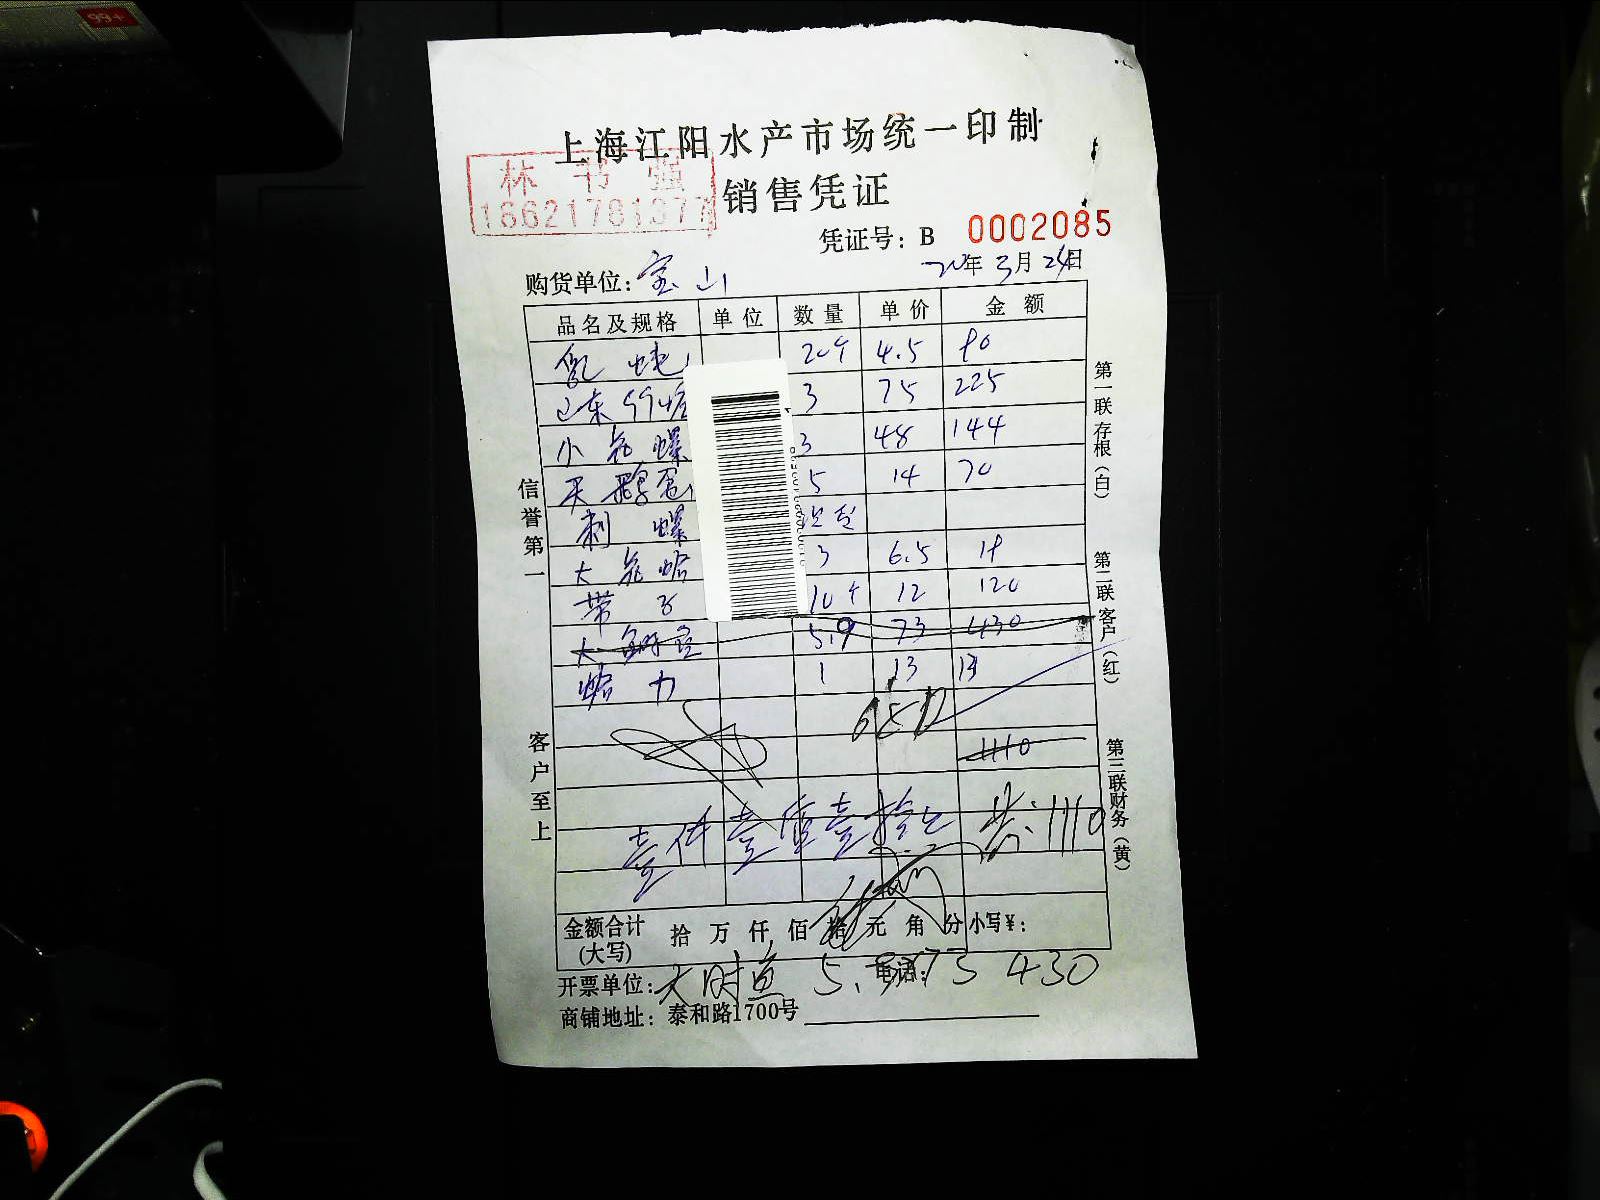 99+
上海江阳水产市场统一印制
林书强
16621781377
销售凭证
凭证号：B 0002085
购货单位：宝山
20年3月24日
品名及规格 单位 数量 单价 金额
20个 4.5 90
山东 3 75 225
小花螺 3 48 144
天鹅蛋 5 14 70
刺螺
大花蛤 3 6.5 19
带子 10个 12 120
大 5.9 73 430
蛤力 1 13 13
1110
壹仟壹佰壹拾元 共：1110
金额合计(大写) 拾 万 仟 佰 拾 元 角 分 小写¥：
开票单位： 5.9×73 430
电话：
商铺地址：泰和路1700号
信誉第一
客户至上
第一联存根（白）
第二联客户（红）
第三联财务（黄）